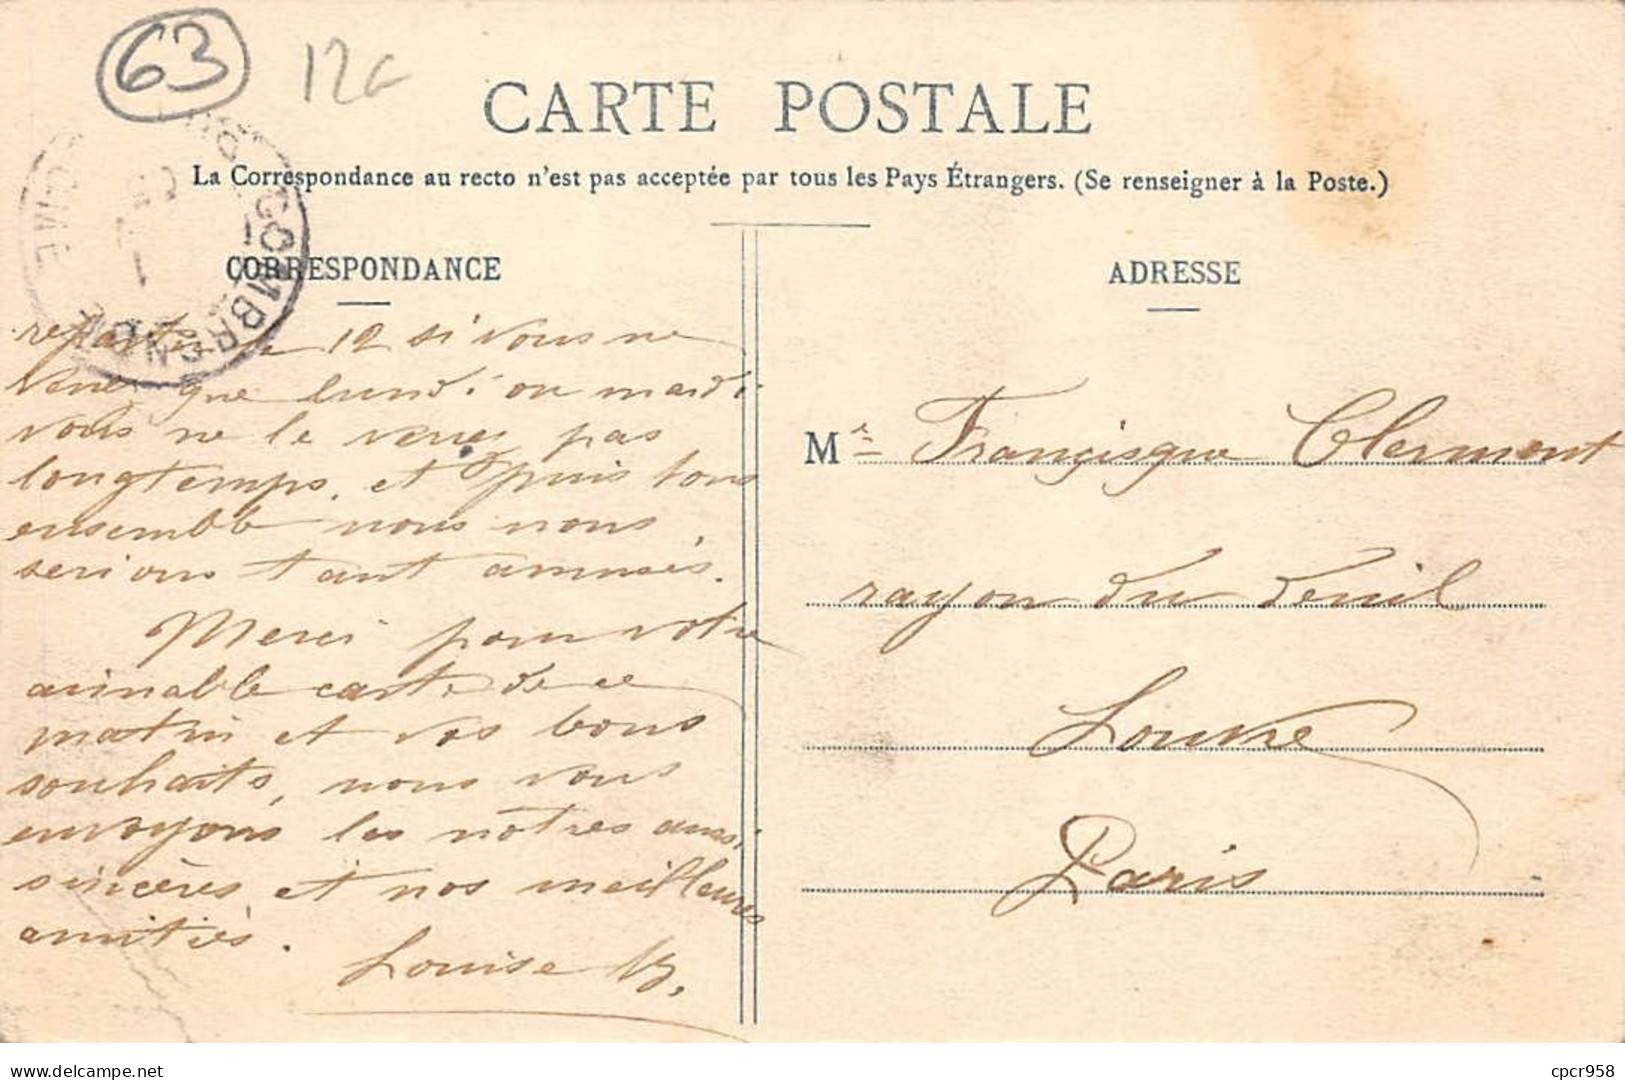 63
12G
CARTE POSTALE
La Correspondance au recto n'est pas acceptée par tous les Pays Étrangers. (Se renseigner à la Poste.)
CORRESPONDANCE
12 si vous ne
venez que lundi ou mardi
vous ne le verrez pas
longtemps, et puis tous
ensemble nous nous
serions tant amusés.
Merci pour votre
aimable carte de ce
matin et vos bons
souhaits, nous vous
envoyons les nôtres aussi
sincères et nos meilleures
amitiés.
Louise B,
ADRESSE
Mr Françisque Clermont
rayon du deuil
Louvre
Paris
delcampe.net
cpcr958